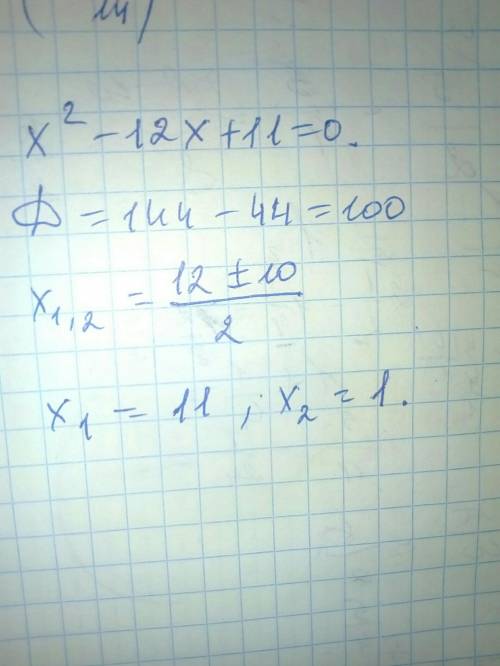 x² - 12x + 11 = 0.
D = 144 - 44 = 100
x₁,₂ = (12 ± 10) / 2
x₁ = 11 , x₂ = 1.